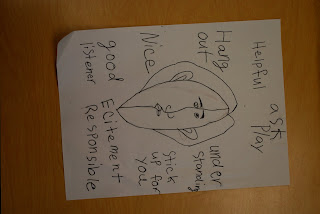 ask
play
Helpful
Hang
out
under
standing
Nice
stick
up for
you
good
listener
Ecitement
Responsible